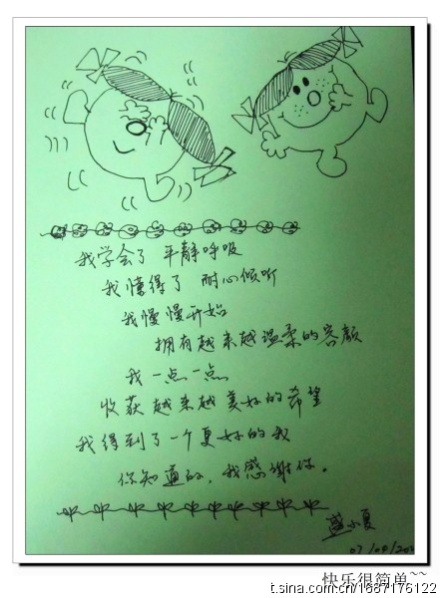 我学会了 平静呼吸
我懂得了 耐心倾听
我慢慢开始
拥有越来越温柔的容颜
我一点一点
收获越来越美好的希望
我得到了一个更好的我
你知道的，我感谢你。
盛小夏
07/04/20
快乐很简单~~
t.sina.com.cn/1667176122